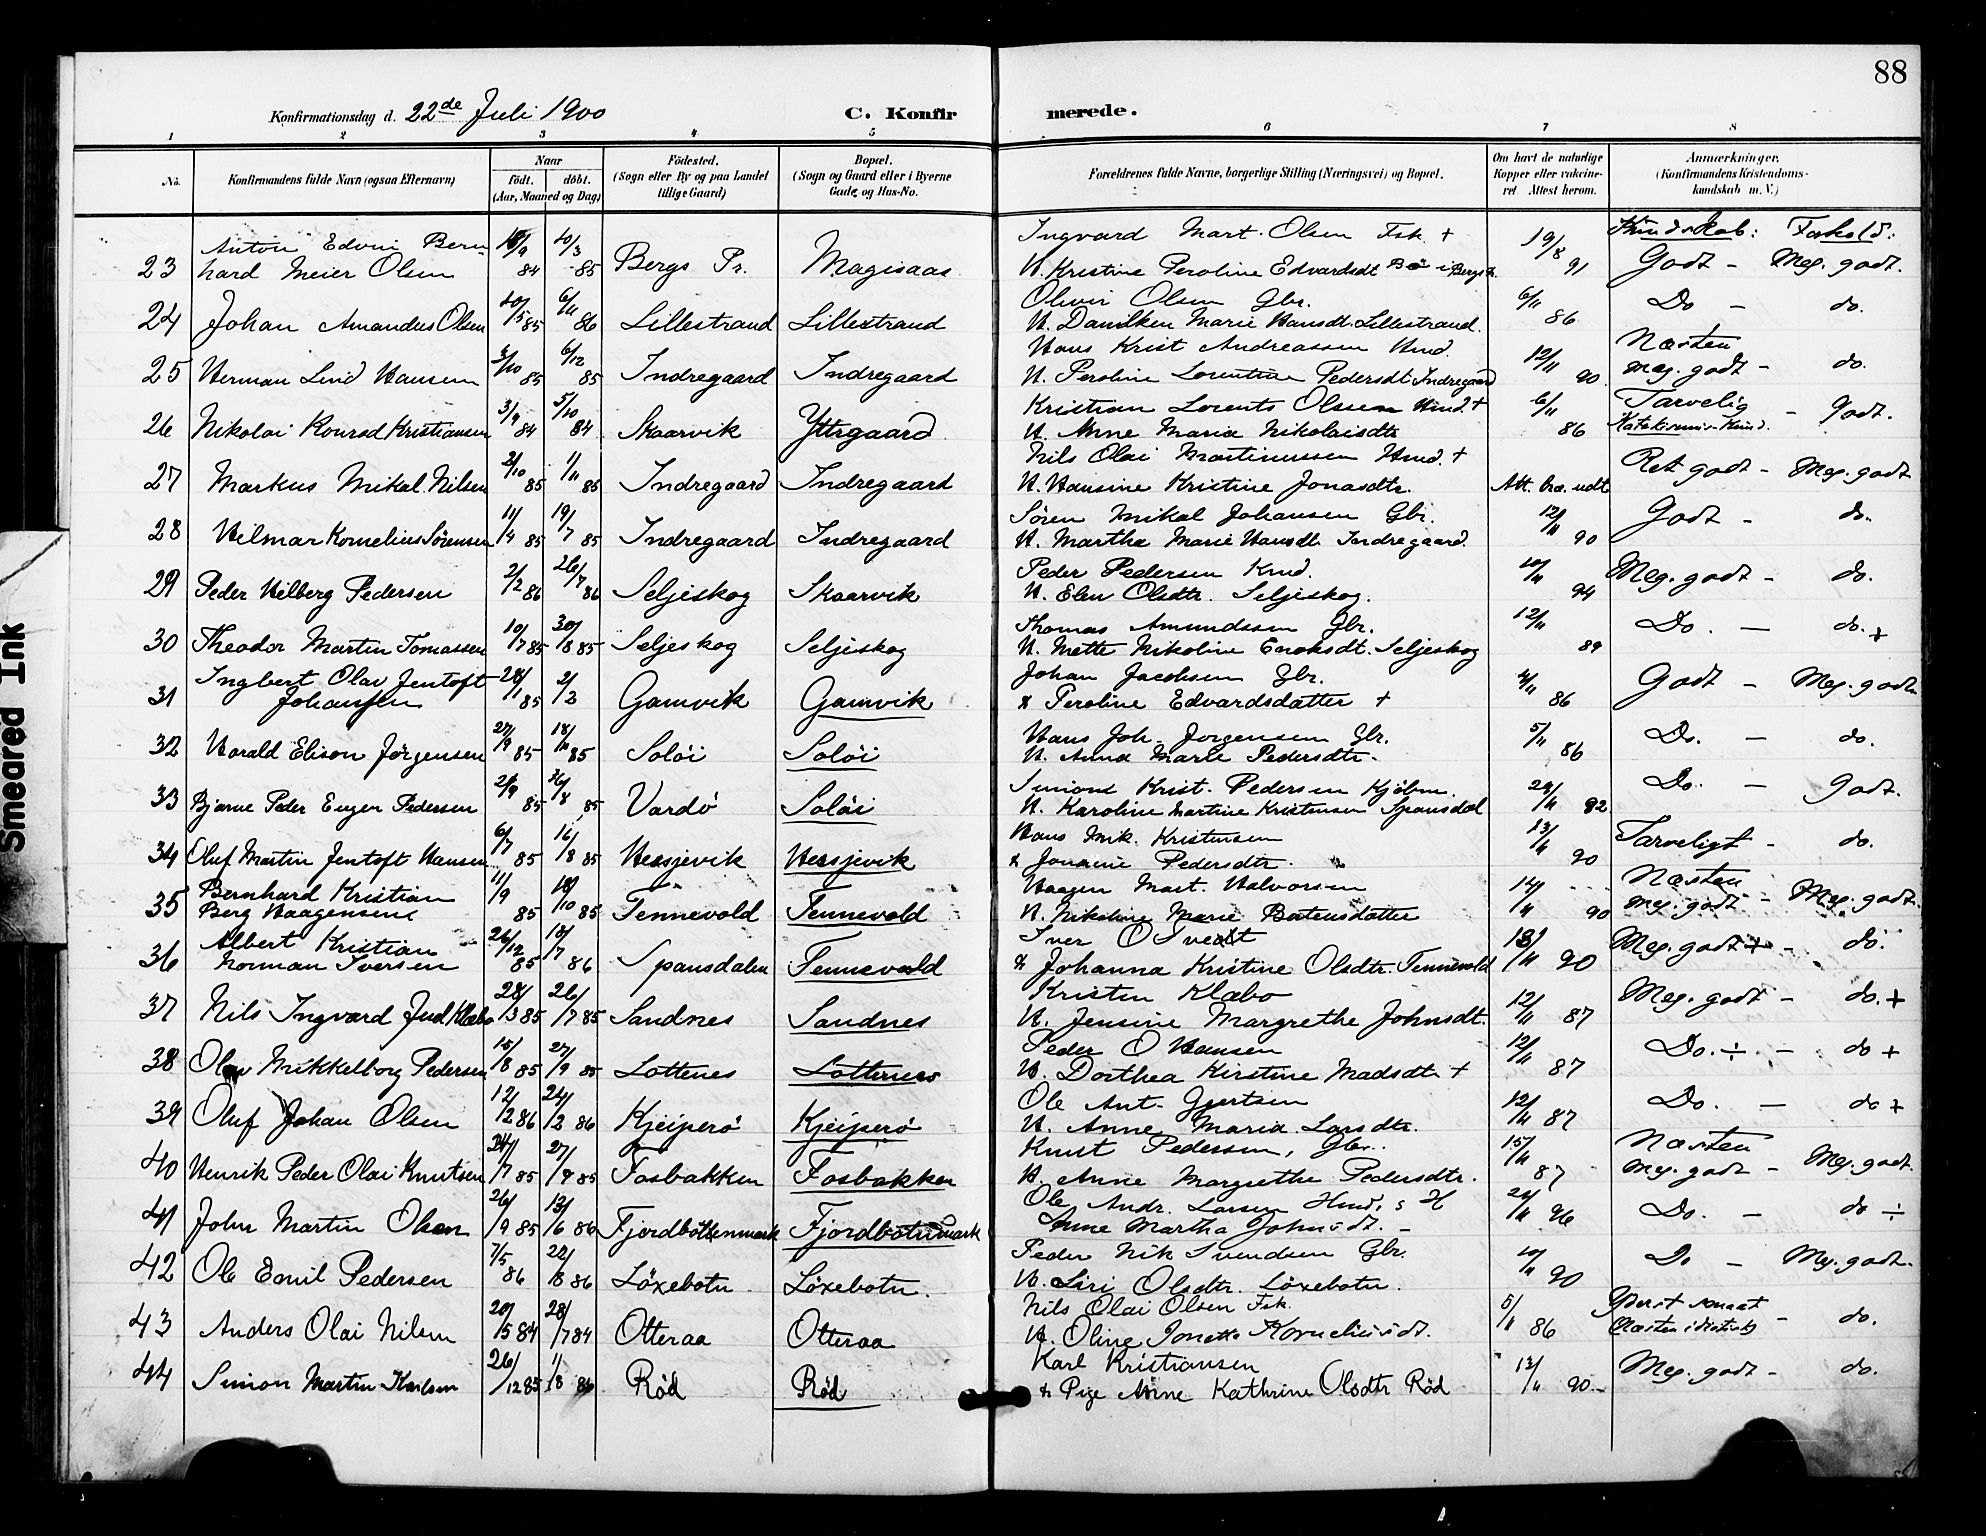 88
Konfirmationsdag d. 22de Juli 1900 C. Konfir merede.
1 2 3 4 5 6 7 8
No. Konfirmandens fulde Navn (ogsaa Efternavn) Naar født. døbt. (Aar, Maaned og Dag) Fødested. (Sogn eller By og paa Landet tillige Gaard) Bopæl. (Sogn og Gaard eller i Byerne Gade og Hus-No. Forældrenes fulde Navne, borgerlige Stilling (Næringsvei) og Bopæl. Om havt de naturlige Kopper eller vakcineret. Attest herom. Anmærkninger. (Konfirmandens Kristendomskundskab m. V.)
Kundskab: Forhold:
Anton Edvin Bern- Ingvard Mart. Olsen Fsk. +
23 hard Meier Olsen 84 10/3 85 Bergs Pr. Magisaas H. Kristine Peroline Edvardsdt Bø i Bergs 19/8 91 Godt - Meg. godt.
Oliver Olsen Gbr.
24 Johan Amandus Olsen 10/5 85 6/11 86 Lillestrand Lillestrand H. Danilken Marie Hansdt. Lillestrand. 6/11 86 Do - do.
Hans Krist Andreassen Hmd.
25 Herman Lind Hansen 3/10 85 6/12 85 Indregaard Indregaard H. Peroline Lorentine Pedersdt Indregaard 12/11 90 Næsten meg. godt - do.
Kristian Lorents Olsen Hmd. +
26 Nikolai Konrad Kristiansen 3/9 84 5/10 84 Skaarvik Yttregaard H. Anne Maria Nikolaisdtr 6/11 86 Tarvelig - Godt.
Nils Olai Martinussen Hmd. +
27 Markus Mikal Nilsen 2/10 85 1/11 85 Indregaard Indregaard H. Hansine Kristine Jonasdtr. Att. bra. udt Ret godt - Meg. godt
Søren Mikal Johansen Gbr.
28 Hilmar Kornelius Sørensen 11/4 85 19/7 85 Indregaard Indregaard H. Martha Marie Hansdt. Indregaard. 12/11 90 Godt - do.
Peder Pedersen Kmd.
29 Peder Hilberg Pedersen 2/2 86 26/7 86 Seljeskog Skaarvik H. Elen Olsdtr. Seljeskog. 10/11 94 Meg. godt - do.
Thomas Amundssen Gbr.
30 Theodor Martin Tomassen 10/7 85 30/8 85 Seljeskog Seljeskog H. Mette Nikoline Enoksdt. Seljeskog 12/11 89 Do. - do. +
Ingbert Olav Jentoft Johan Jacobsen Gbr.
31 Johansen 28/1 85 2/2 Gamvik Gamvik H. Peroline Edvardsdatter + 86 Godt - Meg. godt
Hans Joh. Jørgensen Gbr.
32 Harald Elison Jørgensen 27/9 85 18/10 85 Soløi Soløi H. Anna Marie Pedersdtr. 5/11 86 Do. - do.
Simon Krist. Pedersen Kjøbm.
33 Bjarne Peder Eugen Pedersen 85 85 Vardø Soløi H. Karoline Martine Kristensen Spansdal 92 Do. - Godt.
Hans Mik. Kristensen
34 Oluf Martin Jentoft Hansen 6/7 85 16/8 85 Hessjevik Hessjevik H. Jonanne Pedersdtr. 13/11 90 Tarveligt - do.
Bernhard Kristian Haagen Mart. Halvorsen
35 Berg Haagensen 11/9 85 18/10 85 Tennevold Tennevold H. Nikoline Marie Berteusdatter 14/11 90 Næsten meg. godt - Meg. godt.
Albert Kristian Iver O Tvedt
36 Norman Iversen 26/12 85 18/7 86 Spansdalen Tennevold H. Johanna Kristine Olsdtr. Tennevold 13/11 90 Meg. godt - do.
Kristen Klæbo
37 Nils Ingvard Juul Klæbo 28/3 85 26/7 85 Sandnes Sandnes H. Jensine Margrethe Johnsdt. 12/11 87 Meg. godt - do. +
Peder O Hansen
38 Olav Mikkelborg Pedersen 15/8 85 27/9 85 Lottenes Lottenes H. Dorthea Kirstine Madsdtr + 12/11 87 Do. ÷ - do +
Ole Ant. Gjertsen
39 Oluf Johan Olsen 12/12 86 24/12 86 Kjeiperø Kjeiperø H. Anne Maria Larsdtr. 12/11 87 Do. - do +
Knut Pedersen, Gbr.
40 Henrik Peder Olai Knutsen 24/7 85 27/9 85 Fosbakken Fosbakken H. Anne Margrethe Pedersdtr. 15/11 87 Næsten meg. godt - Meg. godt.
Ole Andr. Larsen Hmd. & H
41 John Martin Olsen 26/9 85 13/6 86 Fjordbottenmark Fjordbotnmark Anne Martha Johnsdt. 24/11 96 Do. - do ÷
Peder Nik Svendsen Gbr.
42 Ole Emil Pedersen 7/5 86 22/8 86 Löxebotn Löxebotn. H. Siri Olsdtr. Löxebotn. 10/11 90 Do - Meg. godt.
Nils Olai Olsen Fsk.
43 Anders Olai Nilsen 20/5 84 28/7 84 Otteraa Otteraa H. Oline Jonette Korneliusdt. 5/11 86 - do.
Karl Kristiansen
44 Simon Martin Karlsen 26/12 85 1/8 86 Rød Rød & Pige Anne Kathrine Olsdtr Rød 13/11 90 Meg. godt - do.
Smeared Ink